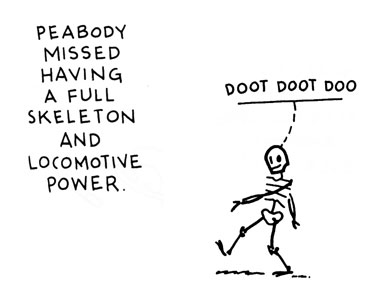 PEABODY
MISSED
HAVING
A FULL
SKELETON
AND
LOCOMOTIVE
POWER.
DOOT DOOT DOO